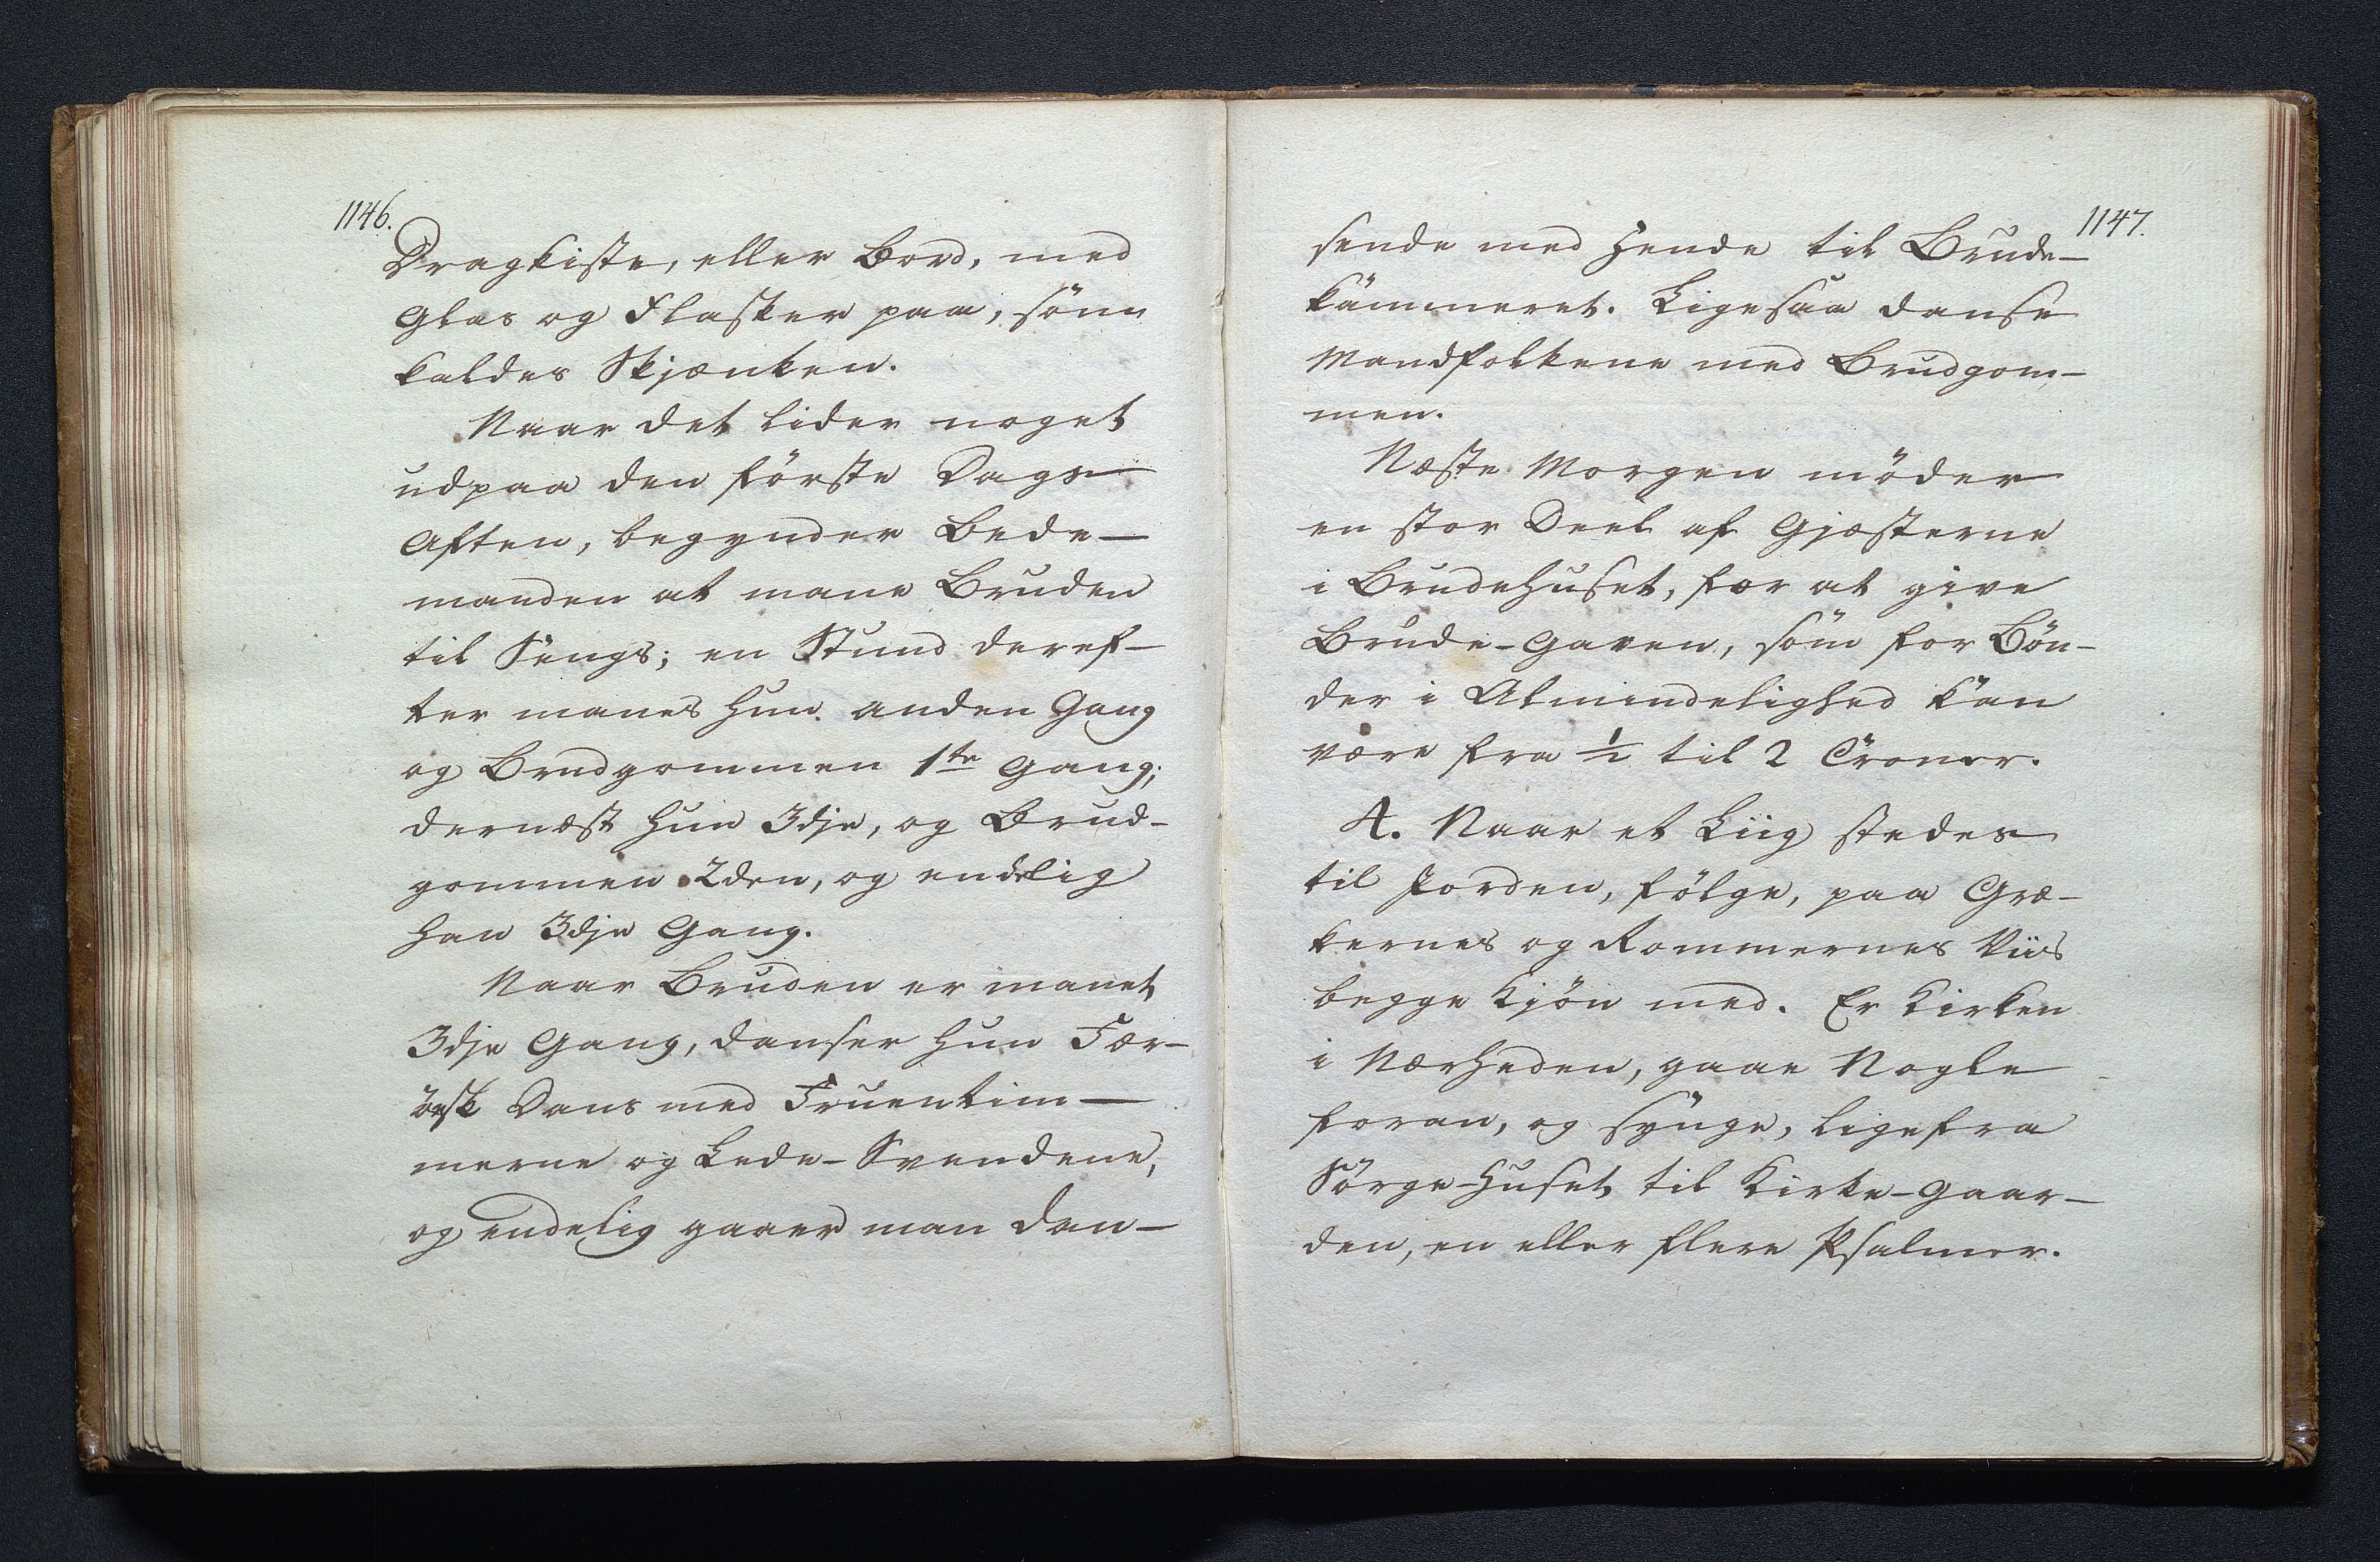 1146.
Dragkiste, eller Bord, med
Glas og Flasker paa, som
kaldes Skjænken.
Naar det lider noget
udpaa den første Dags
Aften, begynder Bede-
manden at mane Bruden
til Sengs; en Stund deref-
ter manes hun anden Gang
og Brudgommen 1ste Gang;
dernæst hun 3dje, og Brud-
gommen 2den, og endelig
han 3dje Gang.
Naar Bruden er manet
3dje Gang, danser hun Fær-
øesk Dans med Fruentim-
merne og Lede-Svendene,
og endelig gaaer man dan-
1147.
sende med hende til Brude-
kammeret. Ligesaa danse
Mandfolkene med Brudgom-
men.
Næste Morgen møder
en stor Deel af Gjæsterne
i Brudehuset, for at give
Brude-Gaven, som for Bøn-
der i Almindelighed kan
være fra ½ til 2 Croner.
4. Naar et Liig stedes
til Jorden, følge, paa Græ-
kernes og Rommernes Viis
begge Kjøn med. Er Kirken
i Nærheden, gaae Nogle
foran, og synge, ligefra
Sørge-Huset til Kirke-Gaar-
den, en eller flere Psalmer.